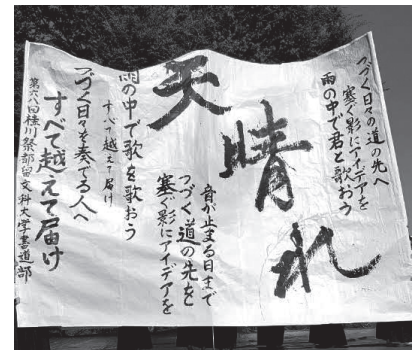 つづく日々の道の先へ
塞ぐ影にアイデアを
雨の中で君と歌おう
天晴れ
音が止まる日まで
つづく道の先を
塞ぐ影にアイデアを
雨の中で歌を歌おう
すべて越えて届け
つづく日々を奏でる人へ
すべて越えて届け
第六八回桂川祭都留文科大学書道部